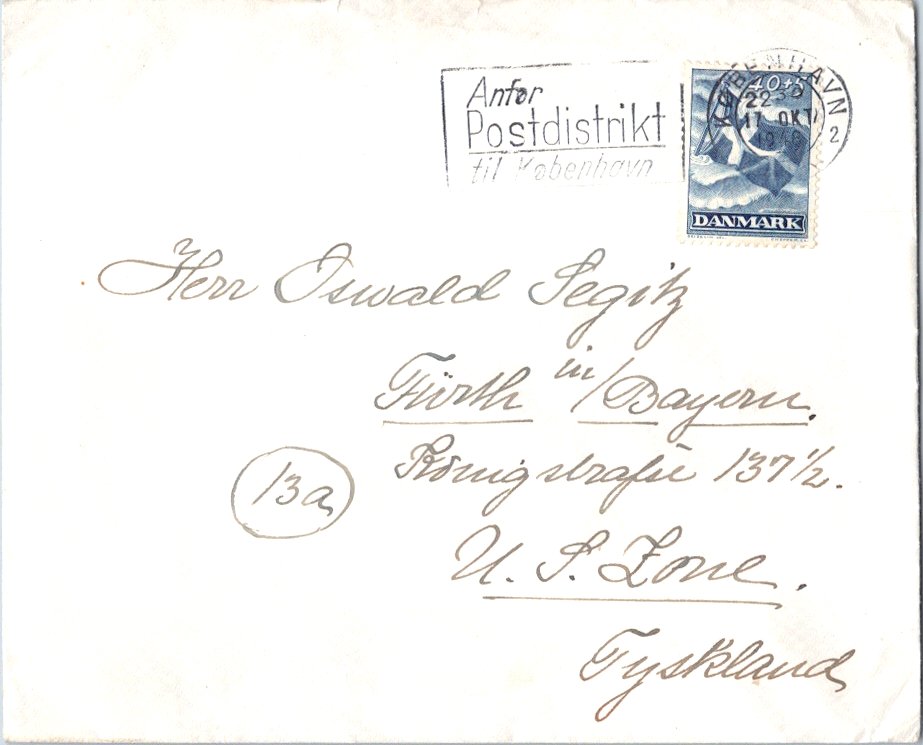 Anfør
Postdistrikt
til København
KØBENHAVN
2
40+5
22
17 OKT
DANMARK
Herr Oswald Segitz
Fürth in/Bayern.
Königstraße 137 1/2.
13a
U. S. Zone.
Tyskland